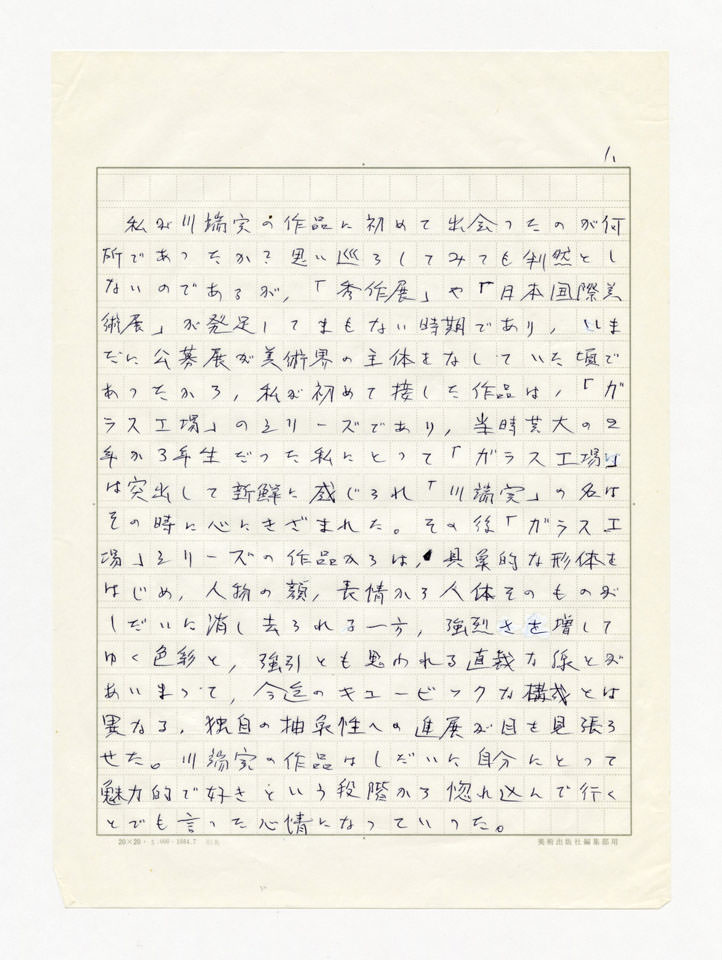 1.
私が川端実の作品に初めて出会ったのが何
所であったか？思い巡らしてみても判然とし
ないのであるが、「秀作展」や「日本国際美
術展」が発足してまもない時期であり、いま
だに公募展が美術界の主体をなしていた頃で
あったから、私が初めて接した作品は、「ガ
ラス工場」のシリーズであり、当時芸大の2
年か3年生だった私にとって「ガラス工場」
は突出して新鮮に感じられ「川端実」の名は
その時に心にきざまれた。その後「ガラス工
場」シリーズの作品からは、具象的な形体を
はじめ、人物の顔，表情から人体そのものが
しだいに消し去られる一方，強烈さを増して
ゆく色彩と，強引とも思われる直裁な線とが
あいまって，今迄のキュービックな構成とは
異なる，独自の抽象性への進展が目を見張ら
せた。川端実の作品はしだいに自分にとって
魅力的で好きという段階から惚れ込んで行く
とでも言った心情になっていった。
20×20・ 1984.7
美術出版社編集部用